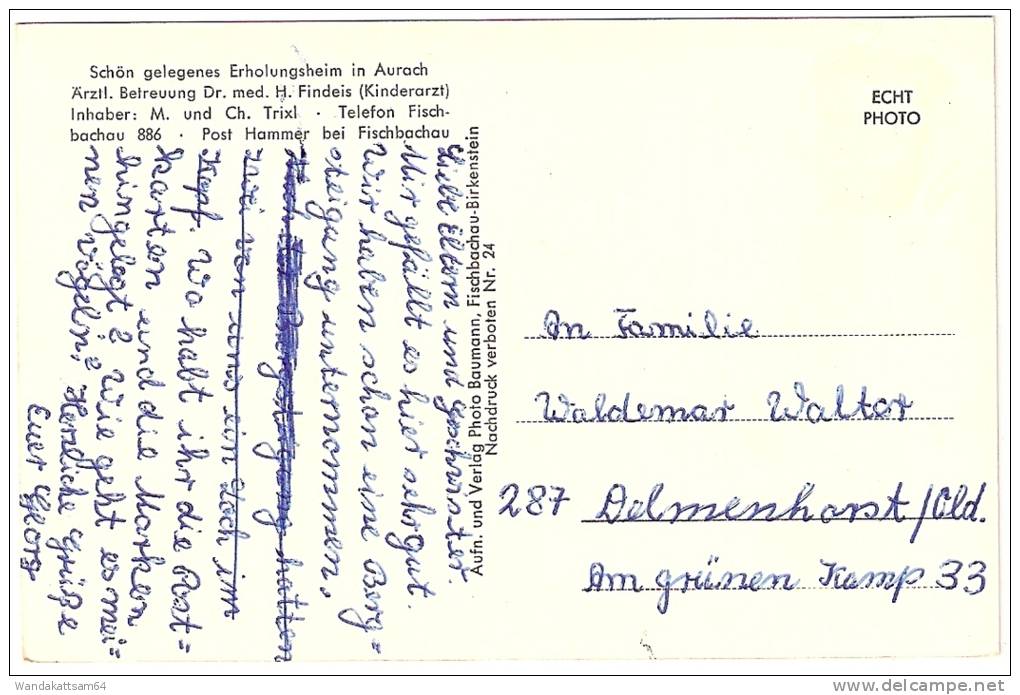 Schön gelegenes Erholungsheim in Aurach
Ärztl. Betreuung Dr. med. H. Findeis (Kinderarzt)
Inhaber: M. und Ch. Trixl · Telefon Fisch-
bachau 886 · Post Hammer bei Fischbachau
Liebe Eltern und Geschwister.
Mir gefällt es hier sehr gut.
Wir haben schon eine Berg=
steigung unternommen,
Nach der Bergsteigung hatten
zwei von uns ein Loch im
Kopf. Wo habt ihr die Post=
karten und die Marken
hingelegt? Wie geht es mei=
nen Vögeln? Herzliche Grüße
Euer Georg
Aufn. und Verlag Photo Baumann, Fischbachau-Birkenstein
Nachdruck verboten Nr. 24
ECHT
PHOTO
An Familie
Waldemar Walter
287 Delmenhorst/Old.
Am grünen Kamp 33
Wandakattsam64
www.delcampe.net